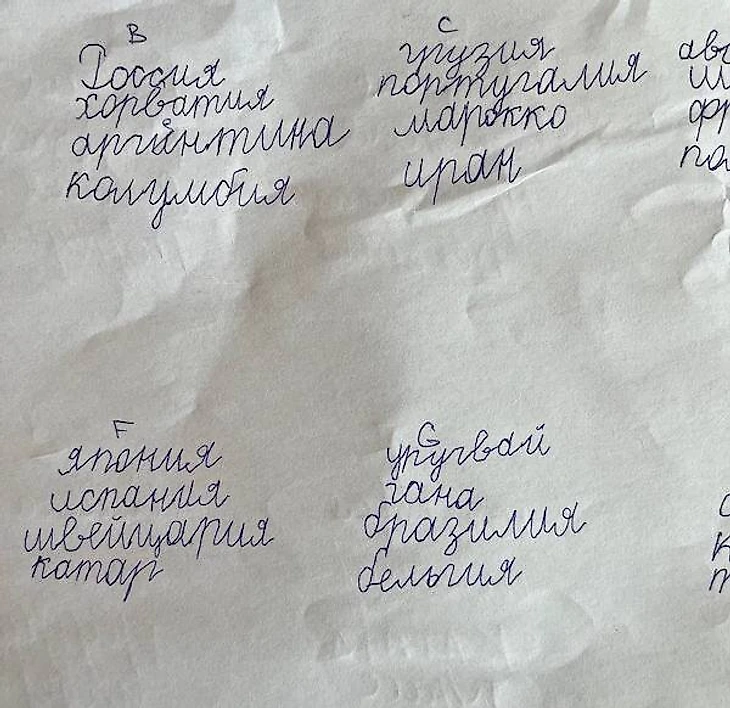 B
Россия
хорватия
аргентина
колумбия
C
грузия
португалия
марокко
иран
F
япония
испания
швейцария
катар
G
уругвай
гана
бразилия
бельгия